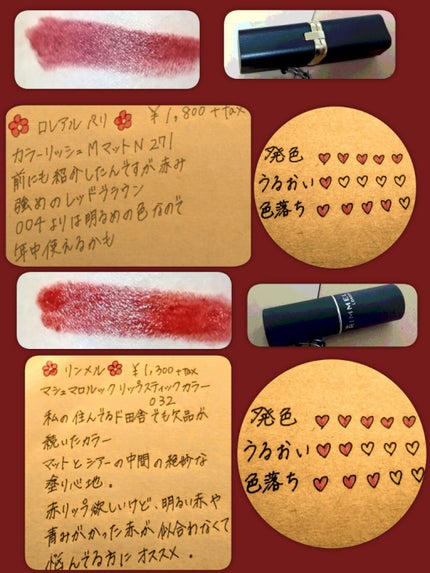 ロレアル パリ ¥1,800+tax
カラーリッシュMマットN 271
前にも紹介したんですが赤み
強めのレッドブラウン
004よりは明るめの色なので
年中使えるかも
発色 ♥♥♥♥♥
うるおい ♥♡♡♡♡
色落ち ♥♥♥♥♡
RIMMEL
リンメル ¥1,300+tax
マシュマロルック リップスティックカラー
032
私の住んでるド田舎でも欠品が
続いたカラー
マットとシアーの中間の絶妙な
塗り心地。
赤リップ欲しいけど、明るい赤や
青みがかった赤が似合わなくて
悩んでる方にオススメ。
発色 ♥♥♥♥♥
うるおい ♥♥♡♡♡
色落ち ♥♥♥♡♡